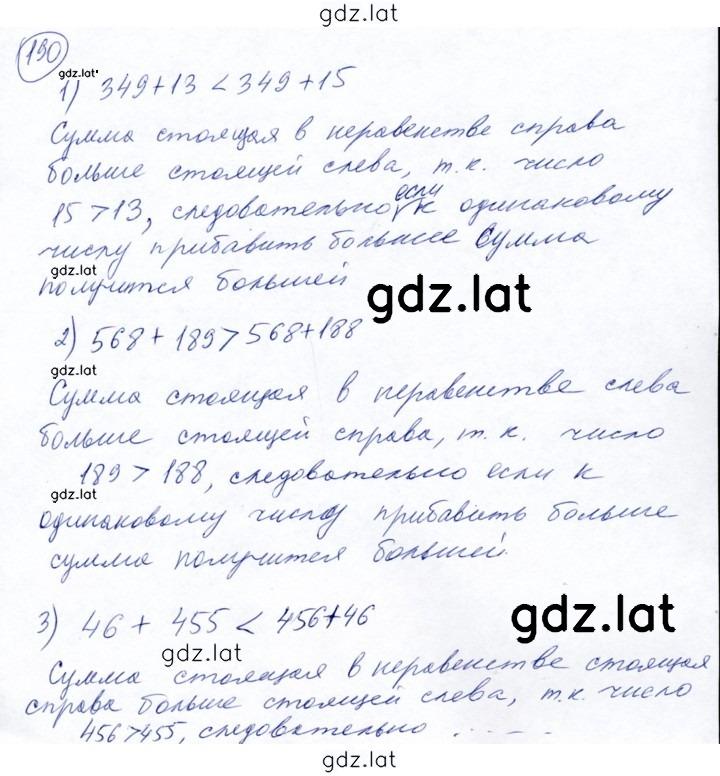 gdz.lat
190
gdz.lat
1) 349+13 < 349+15
Сумма стоящая в неравенстве справа
больше стоящей слева, т.к. число
если
15 > 13, следовательно к одинаковому
числу прибавить большее сумма
gdz.lat
получится большей
gdz.lat
2) 568 + 189 > 568+188
gdz.lat
Сумма стоящая в неравенстве слева
больше стоящей справа, т.к. число
189 > 188, следовательно если к
gdz.lat
одинаковому числу прибавить больше
сумма получится большей.
gdz.lat
3) 46 + 455 < 456+46
gdz.lat
Сумма стоящая в неравенстве стоящая
справа больше стоящей слева, т.к. число
456>455, следовательно .....
gdz.lat